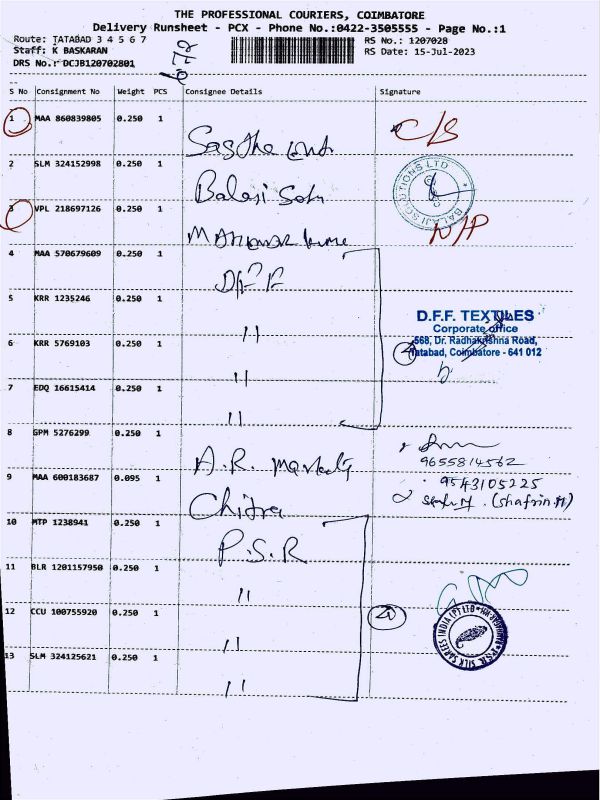 THE PROFESSIONAL COURIERS, COIMBATORE
Delivery Runsheet - PCX - Phone No.:0422-3505555 - Page No.:1
Route: TATABAD 3 4 5 6 7
RS No.: 1207028
Staff: K BASKARAN
RS Date: 15-Jul-2023
DRS No.: DCJB120702801
S No Consignment No Weight PCS Consignee Details Signature
1 MAA 860839805 0.250 1 C/S
2 SLM 324152998 0.250 1 Balaji
BALAJI SOLUTIONS LTD
3 VPL 218697126 0.250 1 N/P
4 MAA 570679609 0.250 1 DFF
5 KRR 1235246 0.250 1 "
D.F.F. TEXTILES
Corporate office
568, Dr. Radhakrishna Road,
Tatabad, Coimbatore - 641 012
6 KRR 5769103 0.250 1 "
4
7 EDQ 16615414 0.250 1 "
8 GPM 5276299 0.250 1 A.R.
9655814562
9 MAA 600183687 0.095 1 Chitra
9543105225
(Shafrin.H)
10 MTP 1238941 0.250 1 P.S.R
11 BLR 1201157950 0.250 1 "
12 CCU 100755920 0.250 1 "
P.S.R. SILK SAREES INDIA (P) LTD
13 SLM 324125621 0.250 1 "